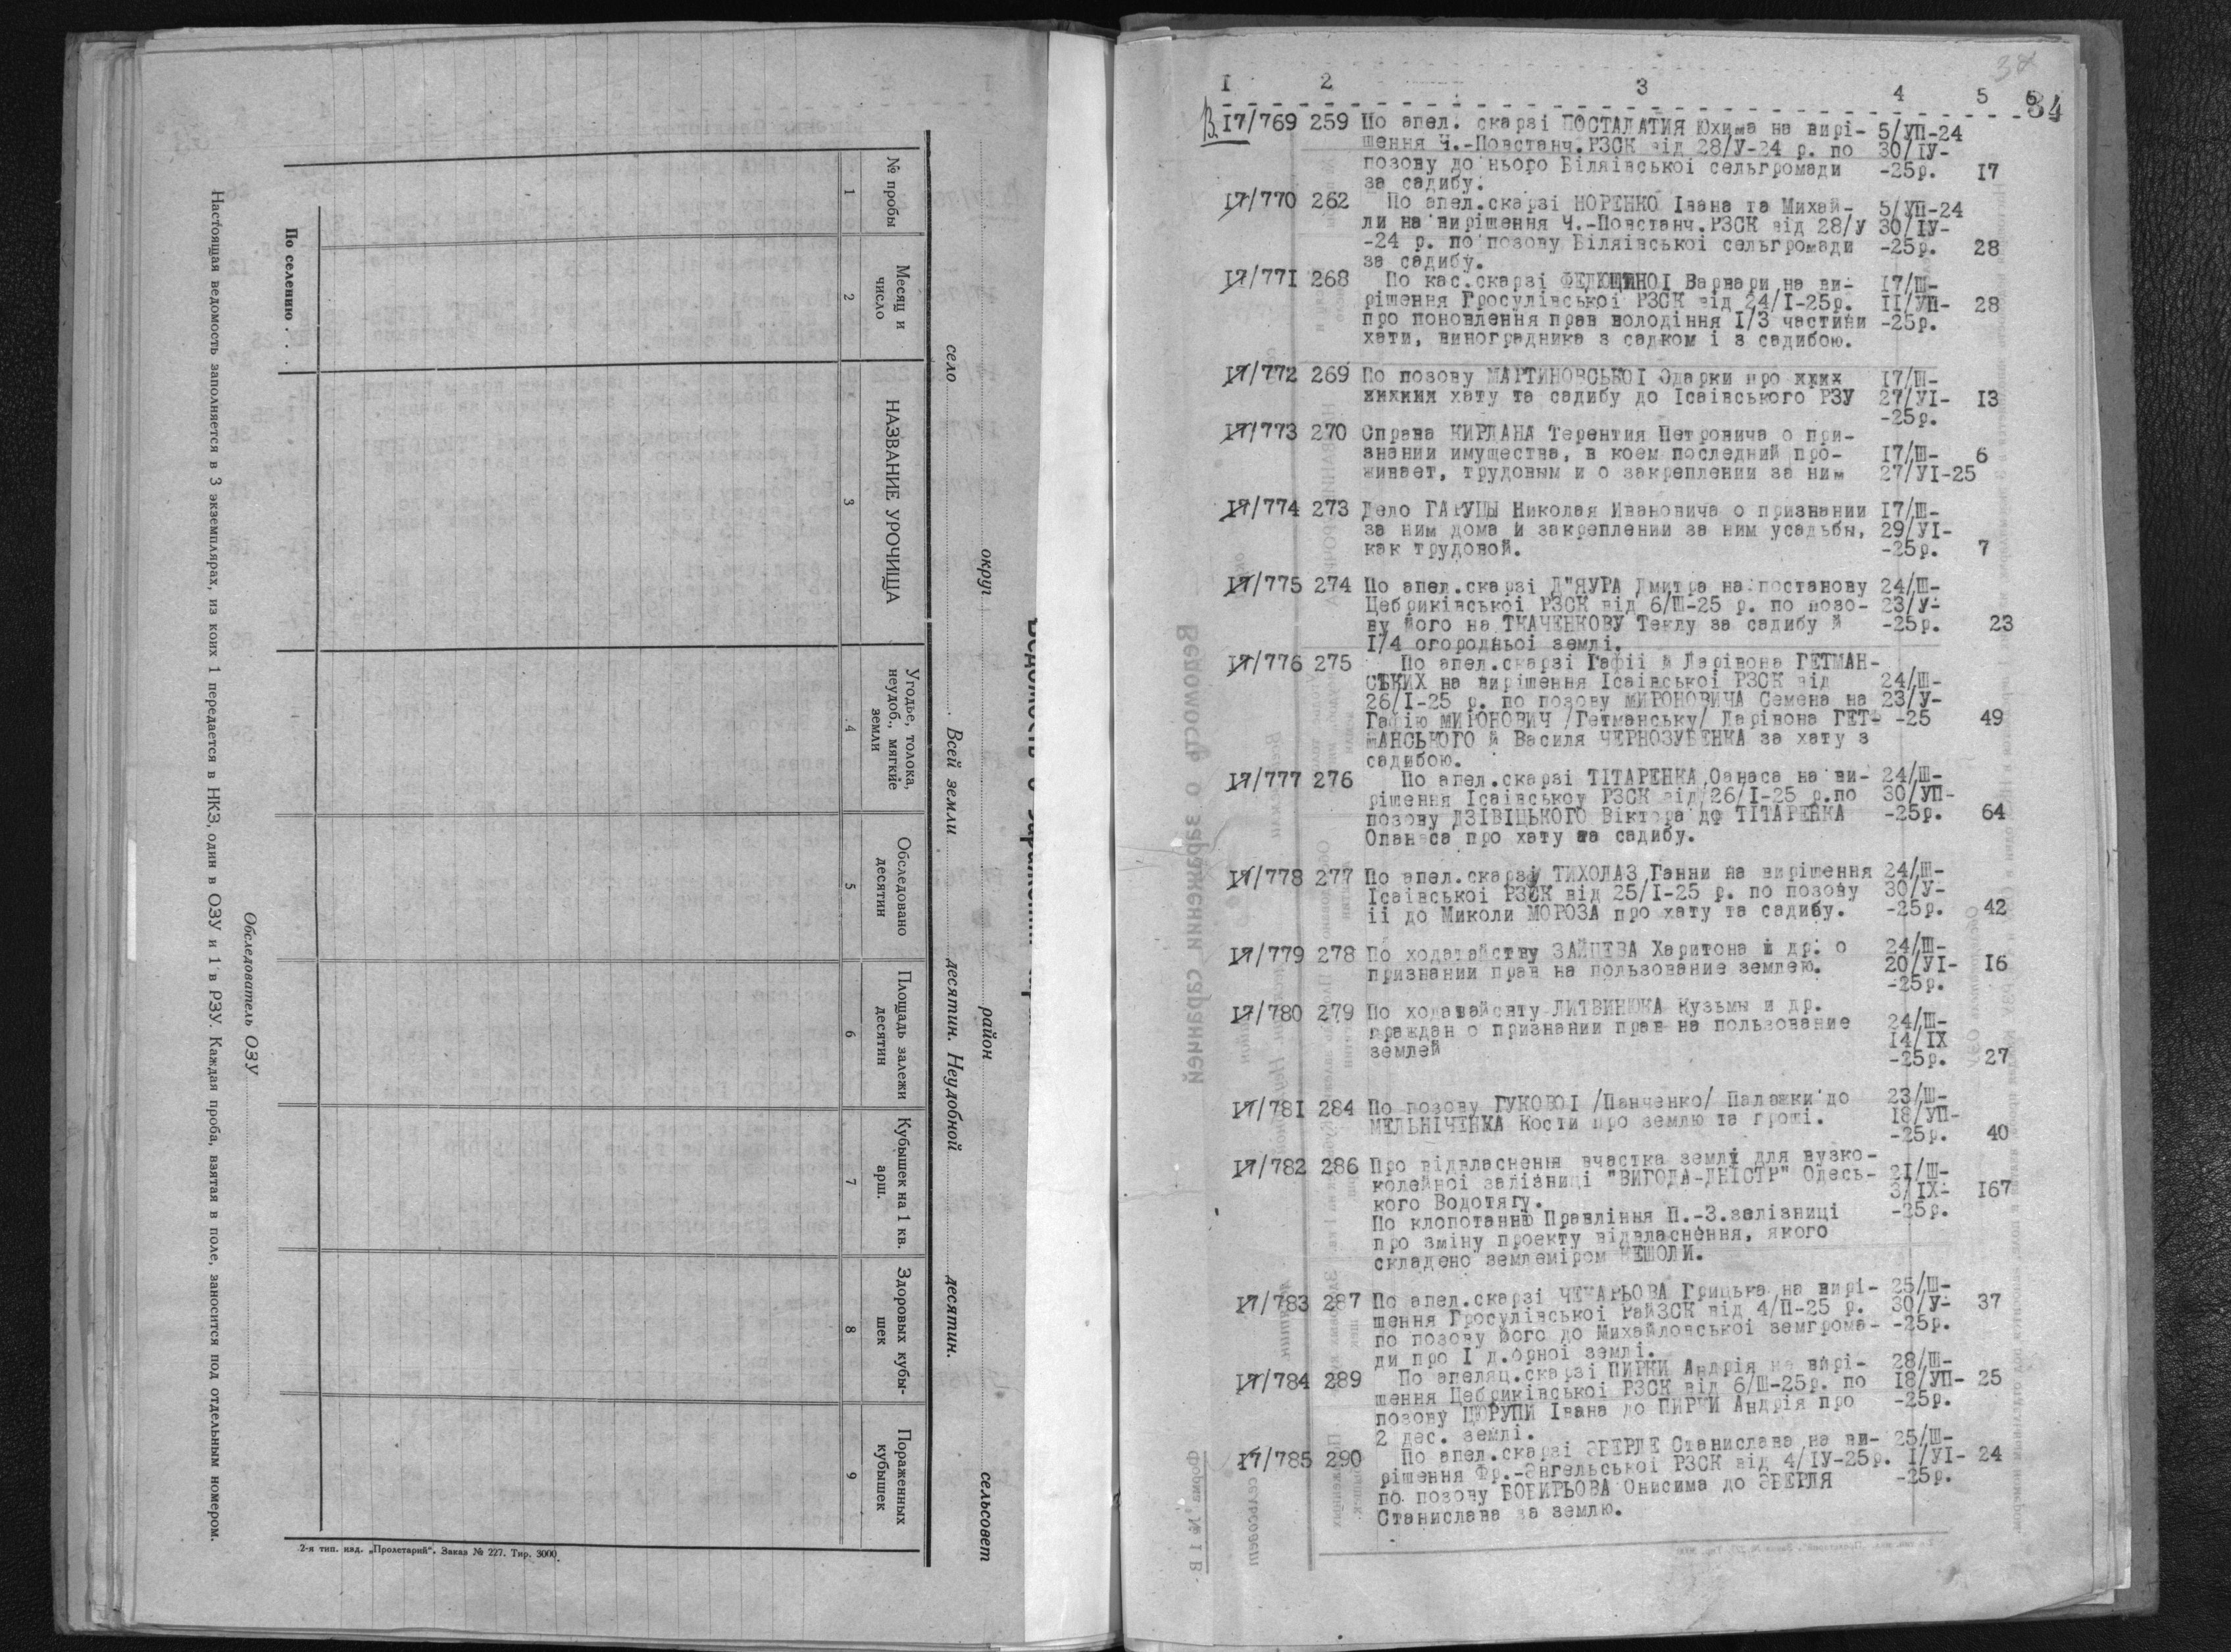 Ведомость о зараженности
округ район сельсовет
село Всей земли десятин. Неудобной десятин.
№ пробы
Месяц и число
НАЗВАНИЕ УРОЧИЩА
Угодье, толока, неудоб., мягкие земли
Обследовано десятин
Площадь залежи десятин
Кубышек на 1 кв. арш.
Здоровых кубышек
Пораженных кубышек
1 2 3 4 5 6 7 8 9
По селению . . . .
Обследователь ОЗУ
Настоящая ведомость заполняется в 3 экземплярах, из коих 1 передается в НКЗ, один в ОЗУ и 1 в РЗУ. Каждая проба, взятая в поле, заносится под отдельным номером.
2-я тип. изд. „Пролетарий". Заказ № 227. Тир. 3000
34
I 2 3 4 5 6
84
В. I7/769 259 По апел. скарзі ПОСТАЛАТИЯ Юхима на вирі- 5/УП-24
шення Ч.-Повстанч.РЗСК від 28/У-24 р. по 30/ІУ-
позову до нього Біляівськоі сельгромади -25р. I7
за садибу.
I7/770 262 По апел.скарзі НОРЕНКО Івана та Михай- 5/УП-24
ли на вирішення Ч.-Повстанч.РЗСК від 28/У 30/ІУ-
-24 р. по позову Біляівськоі сельгромади -25р. 28
за садибу.
I7/77I 268 По кас.скарзі ФЕДЮЩИНОІ Варвари на ви- I7/Ш-
рішення Гросулівськоі РЗСК від 24/I-25р. II/УП- 28
про поновлення прав володіння I/3 частини -25р.
хати, виноградника з садком і з садибою.
I7/772 269 По позову МАРТИНОВСЬКОІ Одарки про I7/Ш-
хату та садибу до Ісаівського РЗУ 27/УІ- I3
-25р.
I7/773 270 Справа КИРДАНА Терентия Петровича о при-
знании имущества, в коем последний про- I7/Ш- 6
живает, трудовым и о закреплении за ним 27/УІ-25
I7/774 273 Дело ГАРУЦЫ Николая Ивановича о признании I7/Ш-
за ним дома и закреплении за ним усадьбы, 29/УІ-
как трудовой. -25р. 7
I7/775 274 По апел.скарзі Д"ЯУРА Дмитра на постанову 24/Ш-
Цебриківськоі РЗСК від 6/Ш-25 р. по позо- 23/У-
ву його на ТКАЧЕНКОВУ Теклу за садибу й -25р. 23
I/4 огородньоі землі.
I7/776 275 По апел.скарзі Гафіі й Ларівона ГЕТМАН-
СЬКИХ на вирішення Ісаівськоі РЗСК від 24/Ш-
26/I-25 р. по позову МИРОНОВИЧА Семена на 23/У-
Гафію МИРОНОВИЧ /Гетманську/ Ларівона ГЕТ- -25 49
МАНСЬКОГО й Василя ЧЕРНОЗУБЕНКА за хату з
садибою.
I7/777 276 По апел.скарзі ТІТАРЕНКА Оанаса на ви- 24/Ш-
рішення Ісаівськоу РЗСК від 26/I-25 р.по 30/УП-
позову ДЗІВІЦЬКОГО Віктора до ТІТАРЕНКА -25р. 64
Опанаса про хату та садибу.
I7/778 277 По апел.скарзі ТИХОЛАЗ Ганни на вирішення 24/Ш-
Ісаівськоі РЗСК від 25/I-25 р. по позову 30/У-
іі до Миколи МОРОЗА про хату та садибу. -25р. 42
I7/779 278 По ходатайству ЗАЙЦЕВА Харитона и др. о 24/Ш-
признании прав на пользование землею. 20/УІ- I6
-25р.
I7/780 279 По ходатайсвту ЛИТВИНЮКА Кузьмы и др.
граждан о признании прав на пользование 24/Ш-
землей I4/IX
-25р. 27
I7/78I 284 По позову ГУКОВОІ /Панченко/ Палажки до 23/Ш-
МЕЛЬНІЧЕНКА Кости про землю та гроші. I8/УП-
-25р. 40
I7/782 286 Про відвласнення вчастка землі для вузко-
колейноі залізниці "ВИГОДА-ДНІСТР" Одесь- 2I/Ш-
кого Водотягу. 3/IX- I67
По клопотанню Правління П.-З.залізниці -25р.
про зміну проекту відвласнення, якого
складено землеміром
I7/783 287 По апел.скарзі ЧЕКАРЬОВА Грицька на вирі- 25/Ш-
шення Гросулівськоі РайЗСК від 4/П-25 р. 30/У- 37
по позову його до Михайловськоі земгрома- -25р.
ди про I д.орноі землі.
I7/784 289 По апеляц.скарзі ПИРКИ Андрія на вирі- 28/Ш-
шення Цебриківськоі РЗСК від 6/Ш-25р. по I8/УП- 25
позову ЦЮРУПИ Івана до ПИРКИ Андрія про -25р.
2 дес. землі.
I7/785 290 По апел.скарзі ЭБЕРЛЕ Станислава на ви- 25/Ш-
рішення Фр.-Энгельськоі РЗСК від 4/ІУ-25р. I/УІ- 24
по позову БОБИРЬОВА Онисима до ЭБЕРЛЯ -25р.
Станислава за землю.